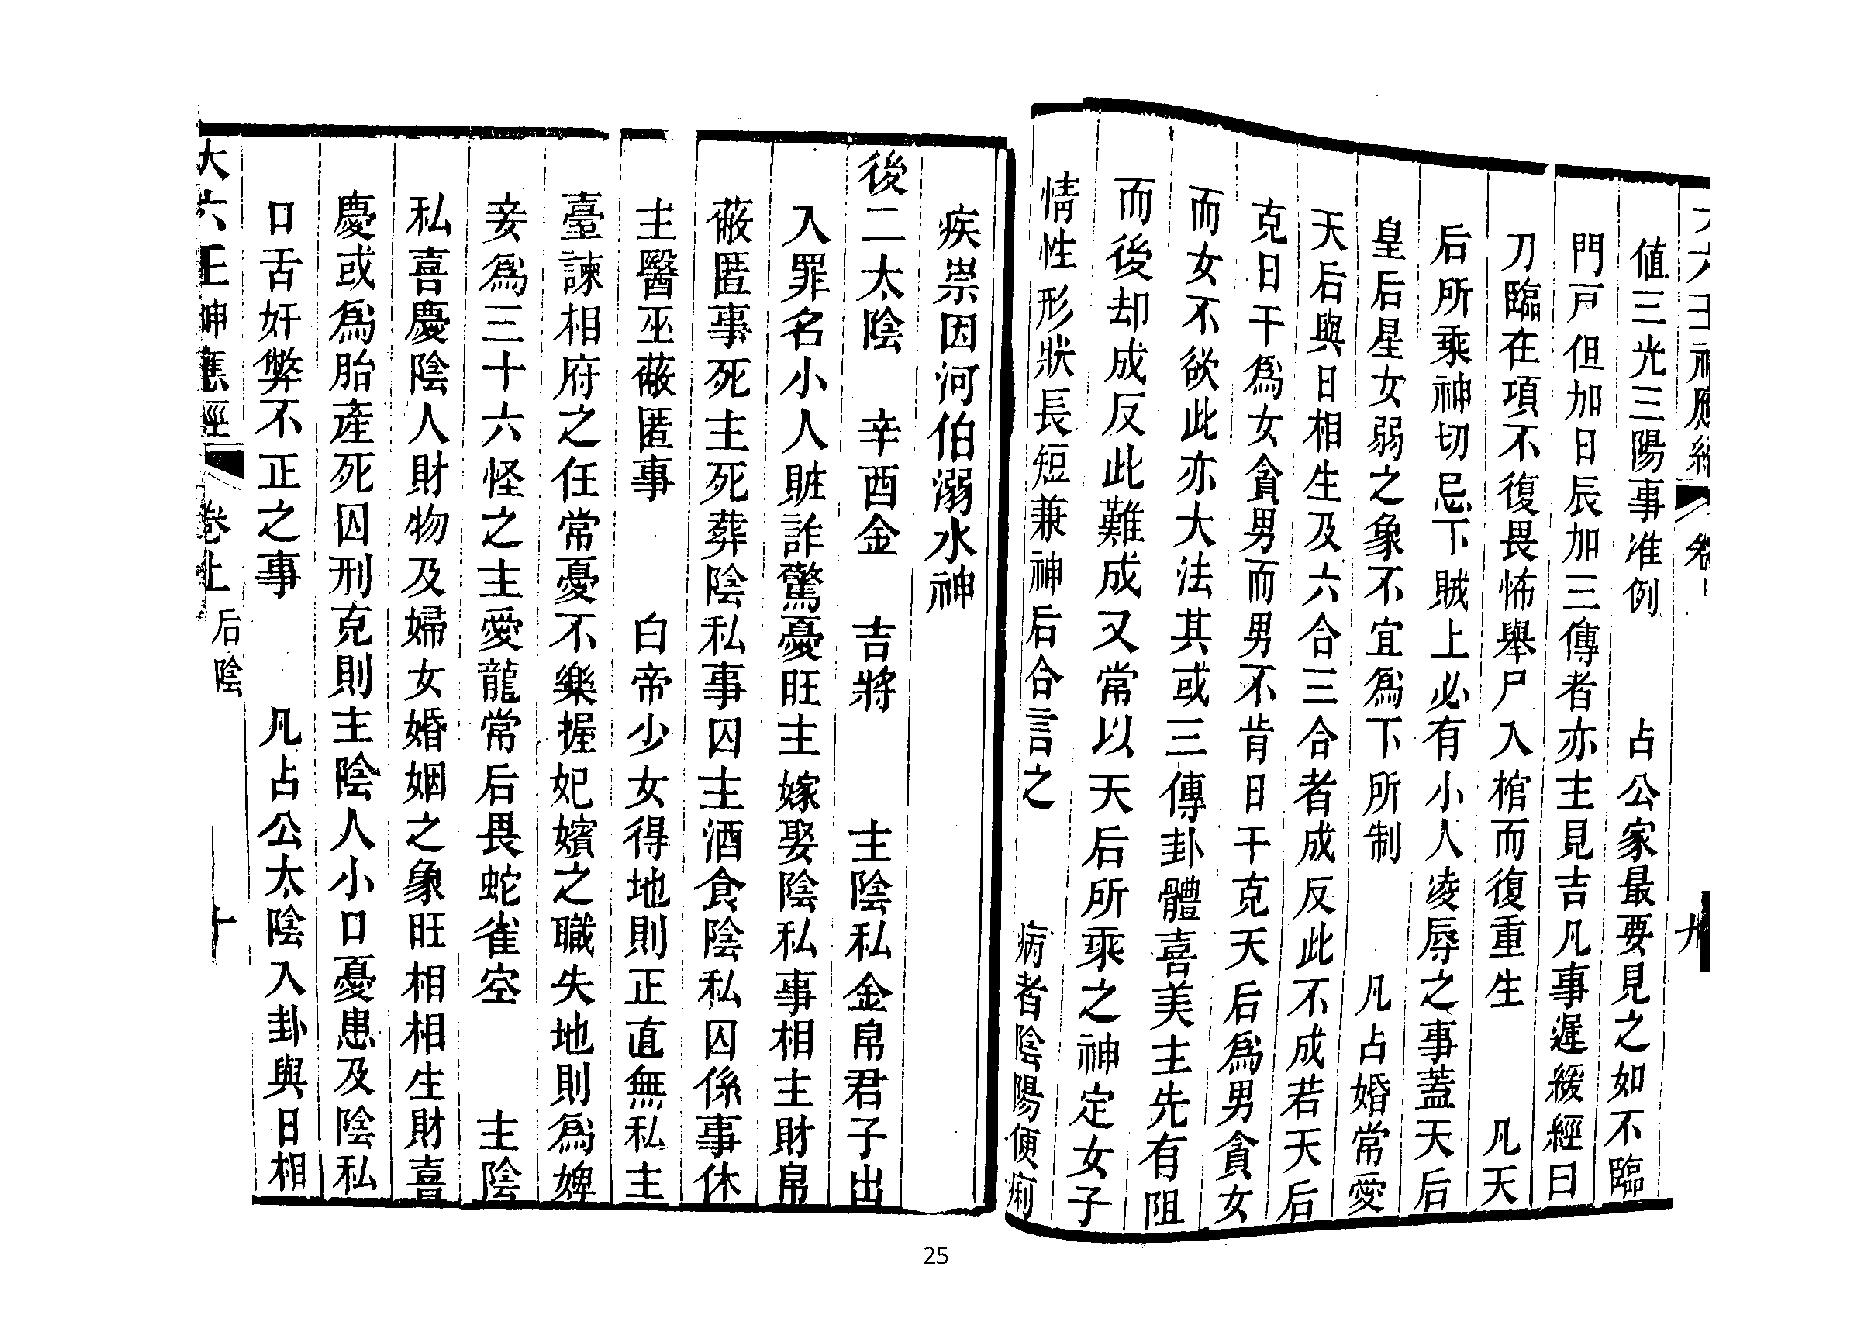 大六壬神應經 卷上 九
值三光三陽事准例 占公家最要見之如不臨
門戸但加日辰加三傳者亦主見吉凡事遲緩經曰
刀臨在項不復畏怖舉尸入棺而復重生 凡天
后所乘神切忌下賊上必有小人凌辱之事蓋天后
皇后星女弱之象不宜爲下所制 凡占婚常愛
天后與日相生及六合三合者成反此不成若天后
克日干爲女貪男而男不肯日干克天后爲男貪女
而女不欲此亦大法其或三傳卦體喜美主先有阻
而後却成反此難成又常以天后所乘之神定女子
情性形狀長短兼神后合言之 病者陰陽便痢
疾祟因河伯溺水神
後二太陰 辛酉金 吉將 主陰私金帛君子出
入罪名小人賍詐驚憂旺主嫁娶陰私事相主財帛
蔽匿事死主死葬陰私事囚主酒食陰私囚係事休
主醫巫蔽匿事 白帝少女得地則正直無私主
臺諫相府之任常憂不樂握妃嬪之職失地則爲婢
妾爲三十六怪之主愛龍常后畏蛇雀空 主陰
私喜慶陰人財物及婦女婚姻之象旺相相生財喜
慶或爲胎產死囚刑克則主陰人小口憂患及陰私
口舌奸弊不正之事 凡占公太陰入卦與日相
大六壬神應經 卷上 后陰 十
25